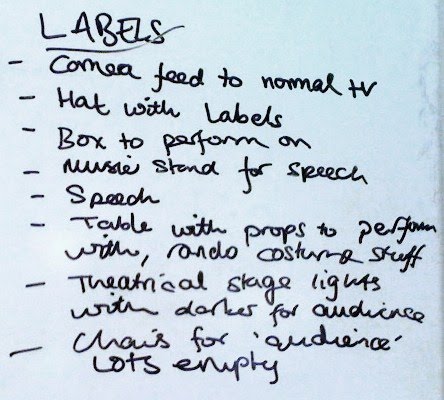 LABELS
- Camera feed to normal tv
- Hat with Labels
- Box to perform on
- Music Stand for speech
- Speech
- Table with props to perform
with, rando costume stuff
- Theatrical stage lights
with darker for audience
- Chairs for 'audience'
LOTS empty